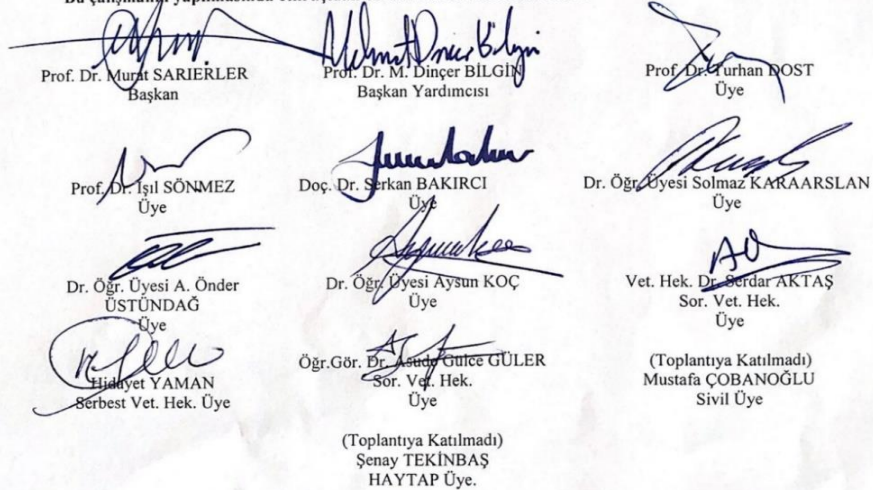 Prof. Dr. Murat SARIERLER
Başkan
Prof. Dr. M. Dinçer BİLGİN
Başkan Yardımcısı
Prof. Dr. Turhan DOST
Üye
Prof. Dr. Işıl SÖNMEZ
Üye
Doç. Dr. Serkan BAKIRCI
Üye
Dr. Öğr. Üyesi Solmaz KARAARSLAN
Üye
Dr. Öğr. Üyesi A. Önder
ÜSTÜNDAĞ
Üye
Dr. Öğr. Üyesi Aysun KOÇ
Üye
Vet. Hek. Dr. Serdar AKTAŞ
Sor. Vet. Hek.
Üye
Hidayet YAMAN
Serbest Vet. Hek. Üye
Öğr.Gör. Dr. Asude Gülce GÜLER
Sor. Vet. Hek.
Üye
(Toplantıya Katılmadı)
Mustafa ÇOBANOĞLU
Sivil Üye
(Toplantıya Katılmadı)
Şenay TEKİNBAŞ
HAYTAP Üye.